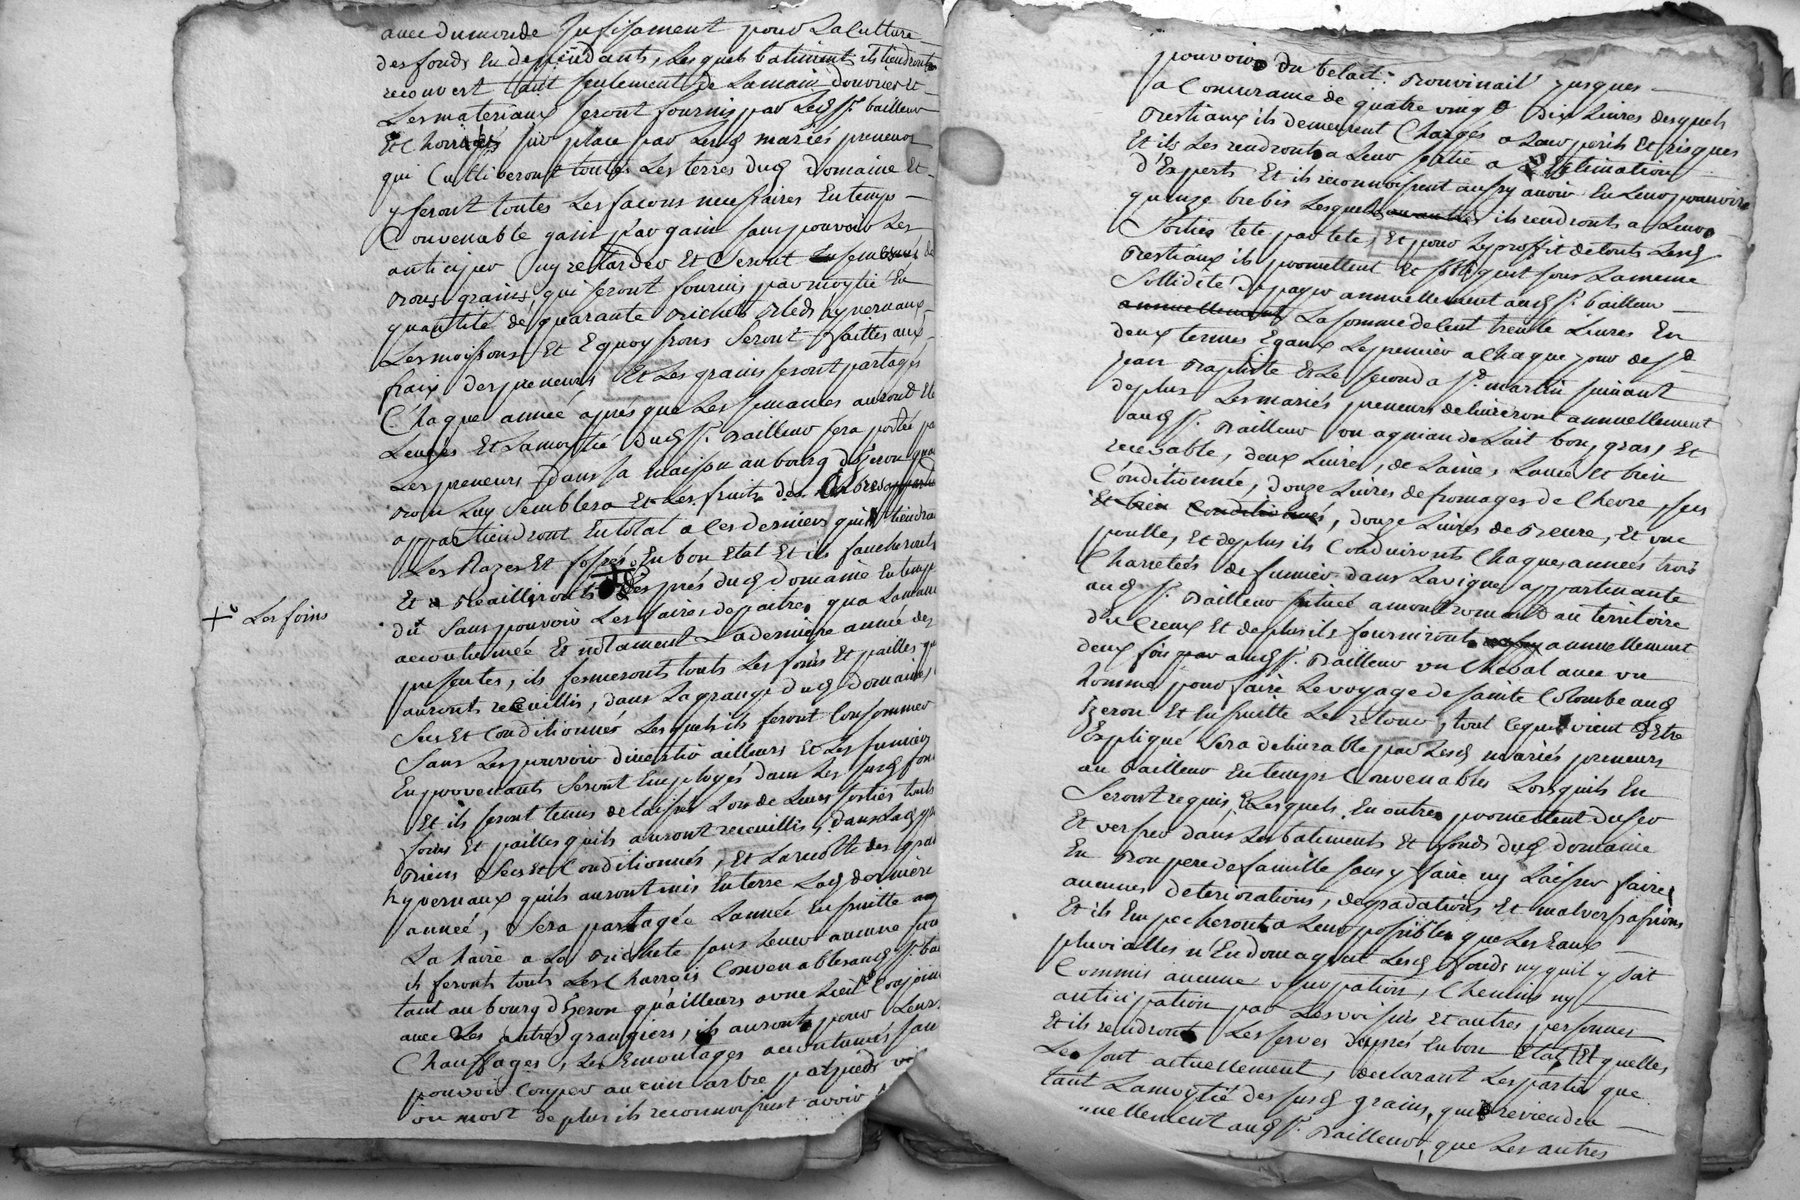 avec du monde sufisament pour La Culture
des fonds En dependants, Lesquels batiments ils tiendronts
recouvert tant seulement de La main d'ouvrier et
Les materiaux seront fournis par Led sr. bailleur
Et Choisies sur place par Lesd mariés preneurs
qui Cultiberont toutes Les terres dud Domaine Et
y feront toutes Les façons necessaires En temps
Convenable gain par gain sans pouvoir Les
anticiper ny retarder Et Seront Ensemencés de
Bons grains, qui seront fournis par moytié En
quantité de quarante Bichets Bleds hyvernaux
Les moissons Et Equoyssons Seront faittes aux
fraix des preneurs Et Les grains seront partagés
Chaque année aprés que Les semances auront Eté
Levées Et La moytié dud sr. Bailleur sera portée par
Les preneurs dans sa maison au bourg d'Izeron quand
Bon Luy semblera Et Les fruits des Arbres
appartiendront En total a Ces derniers qui tiendront
Les Razes Et fossés En bon Etat Et ils faucheronts
Et Recuillironts des prés dud Domaine En temps
+ Les foins
dû Sans pouvoir Les faire depaitre qua La maniere
accoutumée Et notament La derniere année des
presentes, ils fermeront touts Les foins Et pailles qui
auronts recuillis, dans La grange dud domaine,
Secs Et Conditionnés Lesquels ils feront Consommer
Sans Les pouvoir divertir ailleurs Et Les fumiers
En provenants Seront Employés dans Les susd fonds
Et ils seront tenus de laisser Lors de Leurs sorties touts
foins Et pailles quils auront recueillis, dans Lad
Biens Secs Et Conditionnés, Et La recolte des grains
hyvernaux quils auront mis En terre Lad derniere
année, Sera partagée L'année Ensuitte
La haire a La Bichete sans Leur aucune
ils feronts touts Les Charrois Convenables aud sr.
tant au bourg d'Izeron qu'ailleurs a une Lieüe
avec Les autres grangiers, ils auront pour Leurs
Chauffages, Les Emontages accoutumés sans
pouvoir Couper aucun arbre par pieds
ou mort de plus ils reconnoissent avoir
pouvoir du betail Bouvinail jusques
a Concurance de quatre vingt Dix Livres desquels
Bestiaux ils demeurent Chargés a Leur perils Et risques
Et ils Les rendronts a Leur sortie a L'Estimation
d'Experts Et ils reconnoissent aussy avoir En Leur pouvoir
quinze brebis Lesquels ils rendronts a Leur
Sorties tete par tete, Et pour Le proffit de touts Lesd
Bestiaux ils promettent Et s'obligent sous La meme
Sollidité de payer annuellement aud sr. bailleur
annuellement La somme de Cent trente Livres En
deux termes Egaux Le premier a Chaque jour de st.
jean Baptiste Et Le second a st. martin suivant
de plus Les mariés preneurs delivreront annuellement
aud sr. Bailleur un agniau de Lait bon, gras, Et
recevable, deux Livres, de Laine, Lavée Et bien
Conditionnée, douze Livres de fromages de Chevre, secs
Et bien Conditionnés, douze Livres de Beure, Et une
poulle, Et de plus ils Conduironts Chaques années trois
Charretées de fumier dans La vigne appartenante
aud sr. Bailleur situeé a montromant au territoire
du Creux Et de plus ils fourniront annuellement
deux fois par aud sr. Bailleur un Cheval avec un
homme pour faire Le voyage de sainte Colombe aud
Izeron Et Ensuitte Le retour, tout Ce qui vient d'Etre
Expliqué Sera delivrable par Lesd mariés preneurs
au Bailleur En temps Convenables Lorsquils En
Seront requis, Lesquels En outres promettent duser
Et verser dans Les batiments Et fonds dud domaine
En Bon pere de famille sans y faire ny Laisser faire
aucunes deteriorations, degradations Et malversations
Et ils Empecheront a Leur possibles que Les Eaux
pluvialles n'Endomagent Lesd fonds ny quil y soit
Commis aucune usurpation, Chemins ny
anticipation par Les voisins Et autres personnes
Et ils rendront Les serves després En bon Etat Et quelles
Le sont actuellement, declarant Les parties que
tant La moytié des susd grains, qui reviendra
annuellement aud sr. Bailleur, que Les autres